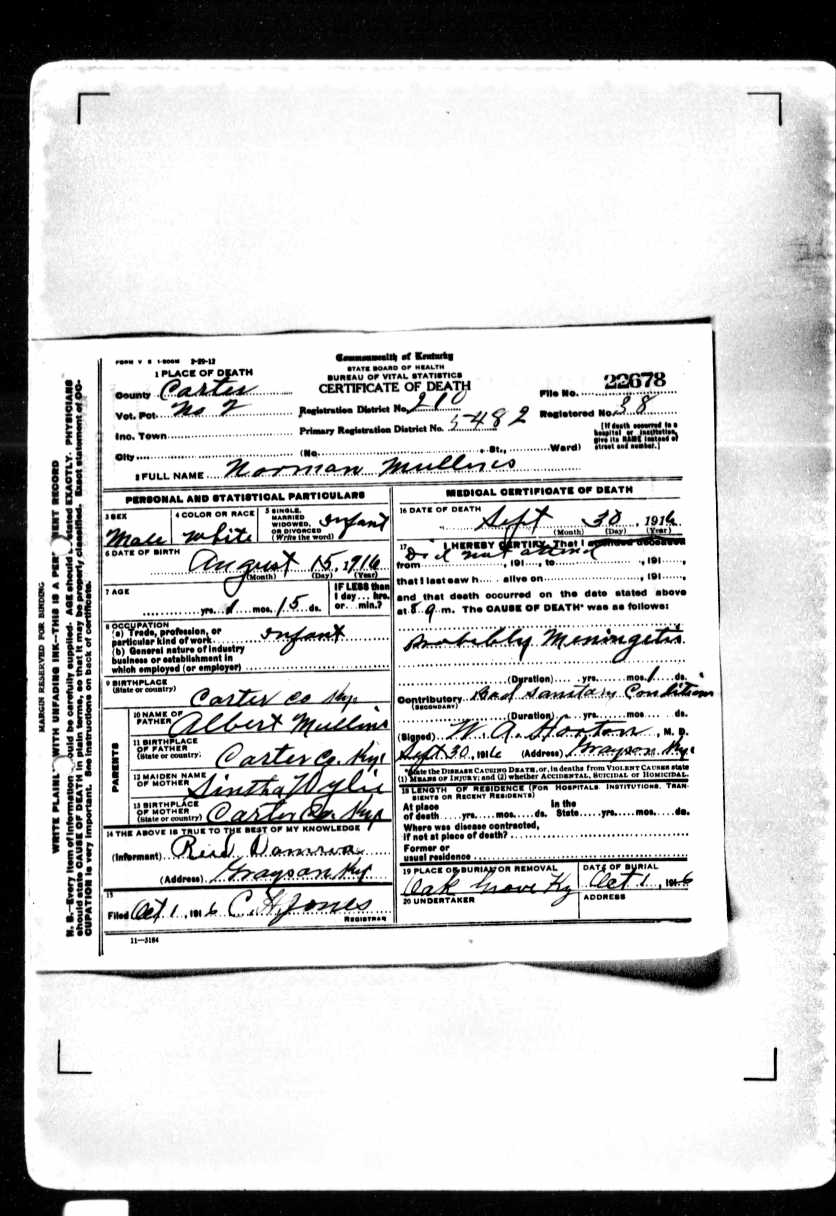 FORM V S 1-500M 2-29-12
Commonwealth of Kentucky
STATE BOARD OF HEALTH
BUREAU OF VITAL STATISTICS
CERTIFICATE OF DEATH
1 PLACE OF DEATH
County Carter
Vot. Pct. No 2
Inc. Town
City (No. St., Ward)
Registration District No. 210
Primary Registration District No. 5482
File No. 22678
Registered No. 38
[If death occurred in a hospital or institution, give its NAME instead of street and number.]
2 FULL NAME Norman Mullins
PERSONAL AND STATISTICAL PARTICULARS
3 SEX Male
4 COLOR OR RACE White
5 SINGLE, MARRIED WIDOWED, OR DIVORCED (Write the word) Infant
6 DATE OF BIRTH August 15, 1916
(Month) (Day) (Year)
7 AGE yrs. 1 mos. 15 ds.
IF LESS than 1 day... hrs. or... min.?
8 OCCUPATION
(a) Trade, profession, or particular kind of work Infant
(b) General nature of industry business or establishment in which employed (or employer)
9 BIRTHPLACE
(State or country) Carter Co Ky.
PARENTS
10 NAME OF FATHER Albert Mullins
11 BIRTHPLACE OF FATHER
(State or country) Carter Co. Ky.
12 MAIDEN NAME OF MOTHER Sintha Wylie
13 BIRTHPLACE OF MOTHER
(State or country) Carter Co. Ky
14 THE ABOVE IS TRUE TO THE BEST OF MY KNOWLEDGE
(Informant)
(Address) Grayson Ky
15
Filed Oct 1, 1916 C. H. Jones
REGISTRAR
11-3184
MEDICAL CERTIFICATE OF DEATH
16 DATE OF DEATH Sept 30, 1916
(Month) (Day) (Year)
17 I HEREBY CERTIFY, That I attended deceased
Did not attend
from , 191 , to , 191 ,
that I last saw h alive on , 191 ,
and that death occurred on the date stated above
at 8 a m. The CAUSE OF DEATH* was as follows:
Probibly Meningetis
(Duration) yrs. mos. 1 ds.
Contributory Bad Sanitary Condition
(SECONDARY)
(Duration) yrs. mos. ds.
(Signed) W. A. Horton, M. D.
Sept 30, 1916 (Address) Grayson Ky.
*State the DISEASE CAUSING DEATH, or, in deaths from VIOLENT CAUSES state
(1) MEANS OF INJURY; and (2) whether ACCIDENTAL, SUICIDAL or HOMICIDAL.
18 LENGTH OF RESIDENCE (FOR HOSPITALS, INSTITUTIONS, TRANSIENTS OR RECENT RESIDENTS)
At place of death yrs. mos. ds. In the State yrs. mos. ds.
Where was disease contracted,
if not at place of death?
Former or
usual residence
19 PLACE OF BURIAL OR REMOVAL
Oak Grove Ky
DATE OF BURIAL
Oct 1, 1916
20 UNDERTAKER
ADDRESS
MARGIN RESERVED FOR BINDING
WRITE PLAINL WITH UNFADING INK—THIS IS A PER ENT RECORD
N. B.—Every item of information ould be carefully supplied. AGE should stated EXACTLY. PHYSICIANS
should state CAUSE OF DEATH in plain terms, so that it may be properly classified. Exact statement of OC-
CUPATION is very important. See instructions on back of certificate.